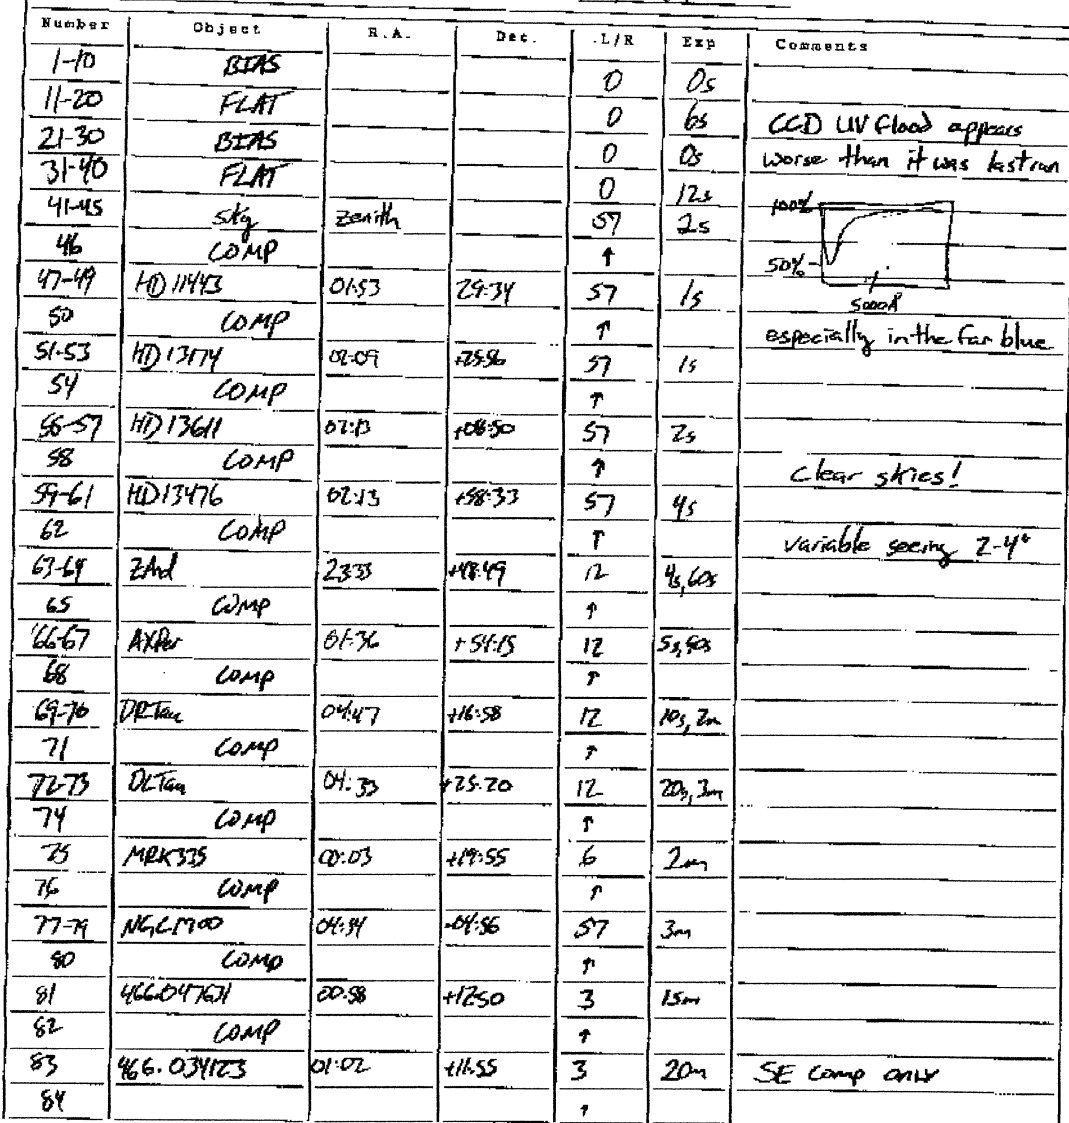 Number Object R.A. Dec. L/R Exp Comments
1-10 BIAS 0 0s
11-20 FLAT 0 6s CCD UV flood appears
21-30 BIAS 0 0s worse than it was last run
31-40 FLAT 0 12s
41-45 sky zenith 57 2s 100%
46 COMP ↑ 50%
47-49 HD 11443 01:53 29:34 57 1s 5000Å
50 COMP ↑ especially in the far blue
51-53 HD 13174 02:09 +25:56 57 1s
54 COMP ↑
56-57 HD 13611 02:13 +08:50 57 2s
58 COMP ↑ clear skies!
59-61 HD13476 02:13 +58:33 57 4s
62 COMP ↑ variable seeing 2-4"
63-64 ZAnd 23:33 +48:49 12 4s, 60s
65 COMP ↑
66-67 AXPer 01:36 +54:15 12 5s,
68 COMP ↑
69-70 DRTau 04:47 +16:58 12 10s, 2m
71 COMP ↑
72-73 DLTau 04:33 +25:20 12 20s, 3m
74 COMP ↑
75 MRK335 00:03 +19:55 6 2m
76 COMP ↑
77-79 NGC1700 04:54 -04:56 57 3m
80 COMP ↑
81 00:58 +12:50 3 15m
82 COMP ↑
83 466.034123 01:02 +11:55 3 20m SE comp only
84 ↑